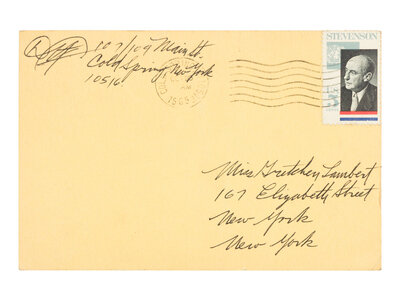 107/109 Main St.
Cold Spring, New York
10516
STEVENSON
1965
Miss Gretchen Lambert
167 Elizabeth Street
New York
New York